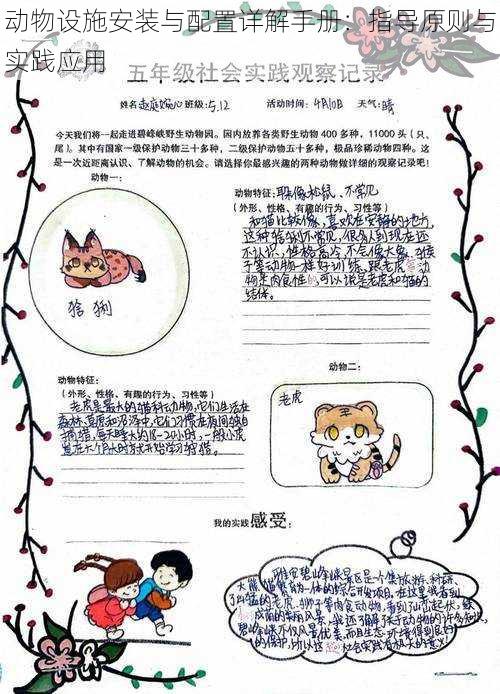 动物设施安装与配置详解手册：指导原则与
实践应用
五年级社会实践观察记录
姓名 班级:5.12 活动时间：4月10日 天气：晴
今天我们将一起走进碧峰峡野生动物园。园内放养各类野生动物 400 多种，11000 头（只、
尾）。其中有国家一级保护动物三十多种，二级保护动物五十多种，极品珍稀动物四种。这
是一次近距离认识、了解动物的机会。请选择你最感兴趣的两种动物做详细的观察记录吧！
动物一：
动物特征：耳朵像松鼠、不常见
（外形、性格、有趣的行为、习性等）
和猫比较像，喜欢在安静的地方，
这种猞猁不常见，很多人到现在还
不认识，性格高冷，不会像大象、猴
子等动物一样好训练，跟老虎 动
物是肉食性的，可以说是老虎和猫的
结体。
猞猁
动物特征：
（外形、性格、有趣的行为、习性等）
老虎是最大的猫科动物，它们生活在
森林、草原和沼泽中，它们习惯在夜间独自
狩猎，每天睡大约18-20小时，一般小虎
崽在六个月大的时候开始学习狩猎。
动物二：
老虎
我的实践感受：
雅安碧峰峡景区是个集旅游、科研、
为一体的综合开发项目，在这里我看到
了凶猛的老虎、狮子等肉食动物，看到了山峦起伏，
成荫的美丽风景，我还了解了关于动物的许多知识，
碧峰峡不仅风景优美，而且生态环境得到良好
的保护，所以这 社会实践有极大的意义！